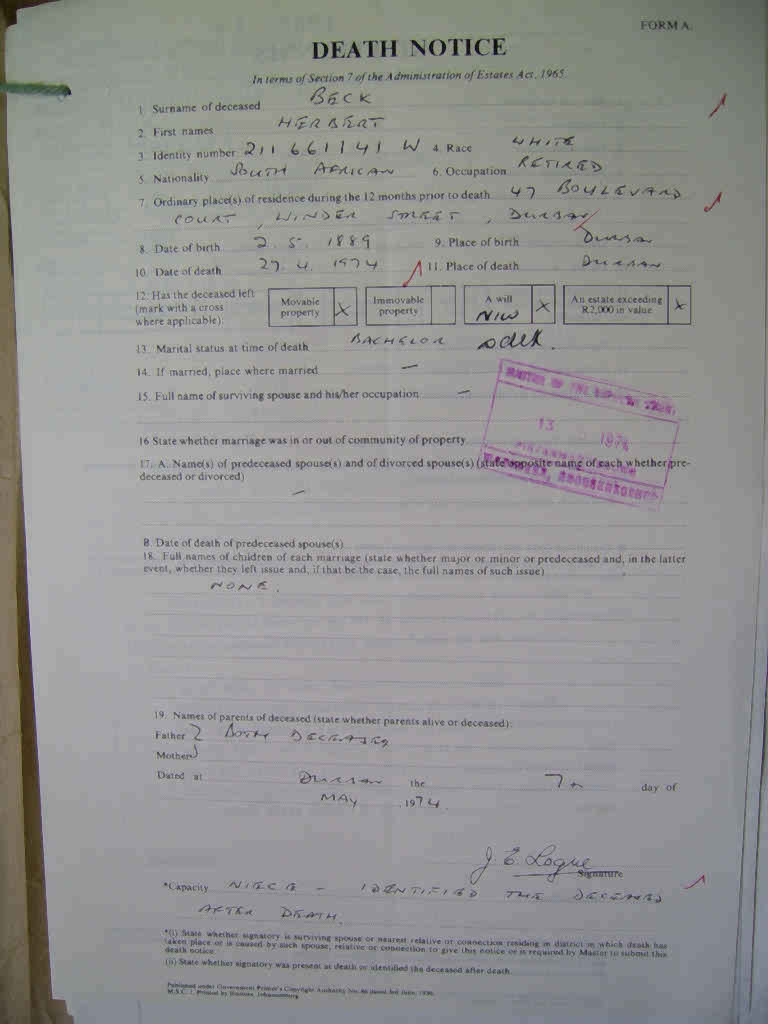 FORM A.
DEATH NOTICE
In terms of Section 7 of the Administration of Estates Act, 1965
1. Surname of deceased BECK
2. First names HERBERT
3. Identity number 211 661141 W 4. Race WHITE
5. Nationality SOUTH AFRICAN 6. Occupation RETIRED
7. Ordinary place(s) of residence during the 12 months prior to death 47 BOULEVARD
COURT, WINDER STREET, DURBAN
8. Date of birth 2. 5. 1889 9. Place of birth DURBAN
10. Date of death 27. 4. 1974 11. Place of death DURBAN
12. Has the deceased left (mark with a cross where applicable): Movable property X Immovable property A will X An estate exceeding R2,000 in value X
13. Marital status at time of death BACHELOR
14. If married, place where married —
15. Full name of surviving spouse and his/her occupation —
13 1974
16 State whether marriage was in or out of community of property
17. A. Name(s) of predeceased spouse(s) and of divorced spouse(s) (state opposite name of each whether pre-
deceased or divorced)
—
B. Date of death of predeceased spouse(s)
18. Full names of children of each marriage (state whether major or minor or predeceased and, in the latter
event, whether they left issue and, if that be the case, the full names of such issue)
NONE.
19. Names of parents of deceased (state whether parents alive or deceased):
Father } BOTH DECEASED
Mother
Dated at DURBAN the 7th day of
MAY 1974.
J. E. Logue
Signature
*Capacity NIECE – IDENTIFIED THE DECEASED
AFTER DEATH.
*(i) State whether signatory is surviving spouse or nearest relative or connection residing in district in which death has
taken place or is caused by such spouse, relative or connection to give this notice or is required by Master to submit this
death notice
(ii) State whether signatory was present at death or identified the deceased after death.
Published under Government Printer's Copyright Authority No.